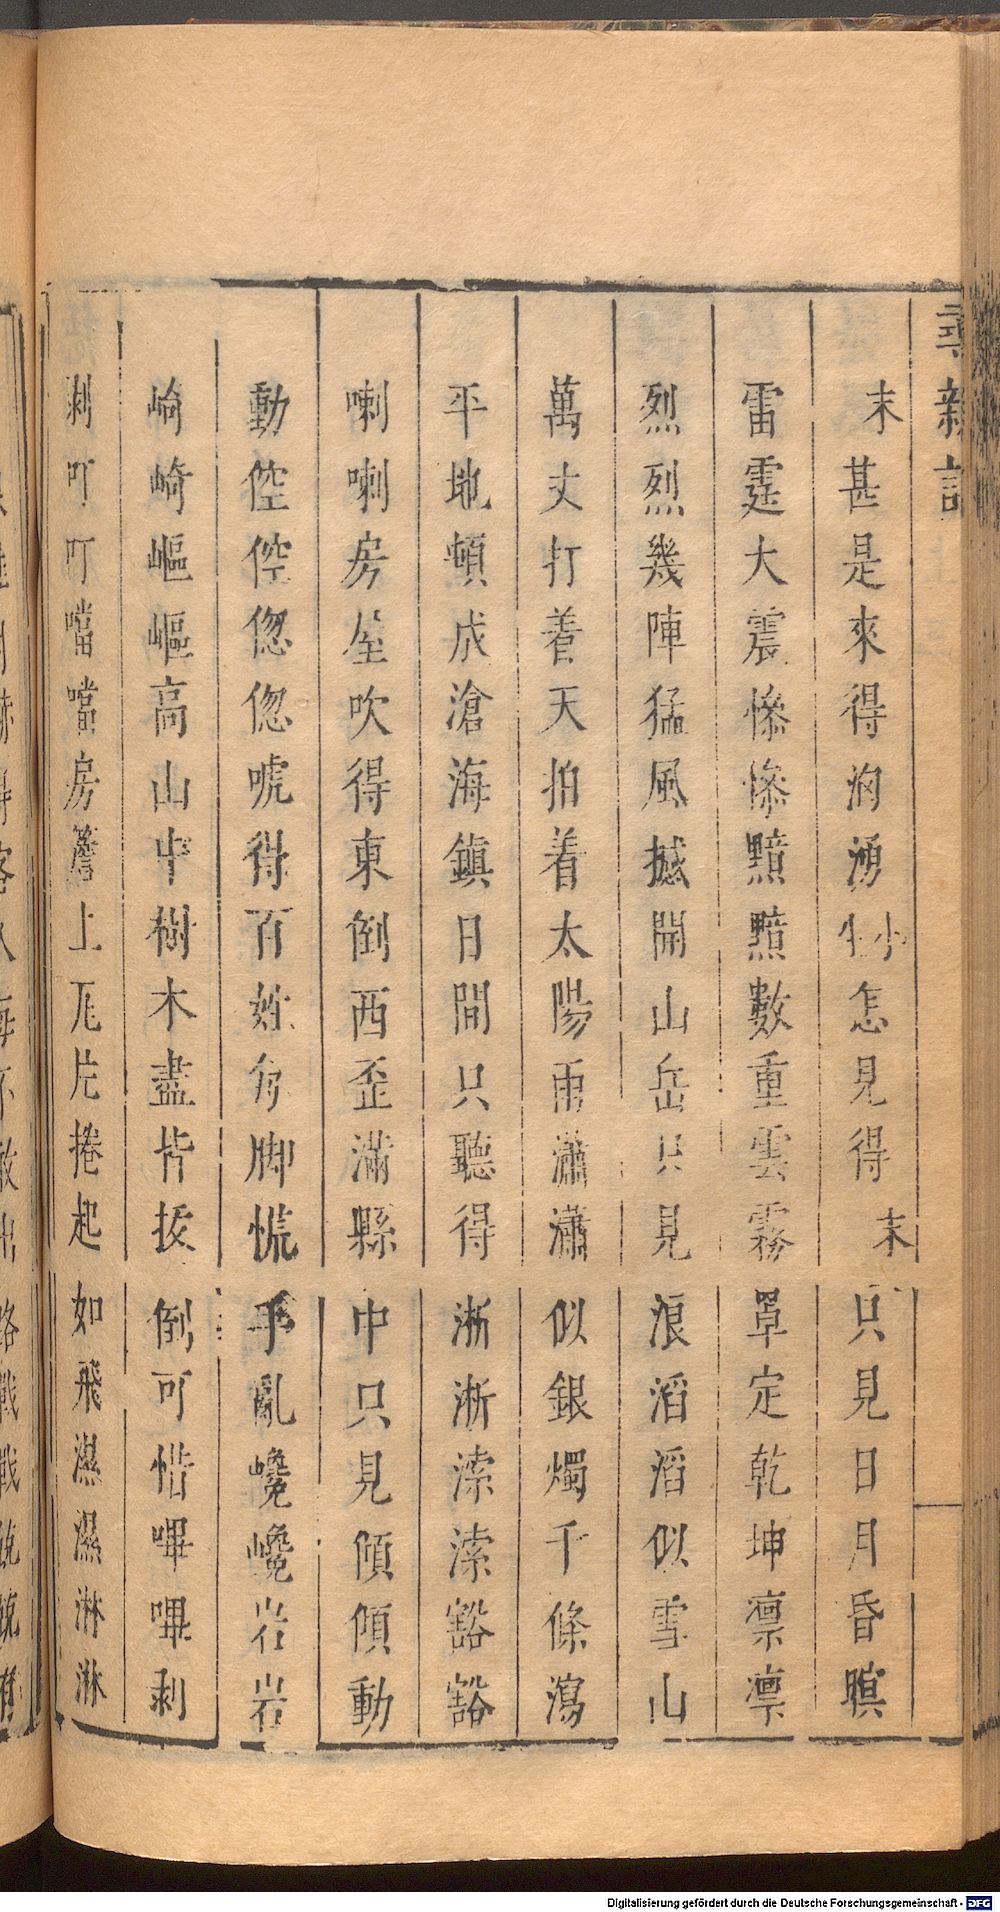 末甚是來得洶湧外小怎見得末只見日月昏瞋
雷霆大震慘慘黯黯數重雲霧罩定乾坤凛凛
烈烈幾陣猛風撼開山岳只見浪滔滔似雪山
萬丈打着天拍着太陽雨瀟瀟似銀燭千條瀉
平地頓成滄海鎮日間只聽得淅淅溹溹豁豁
喇喇房屋吹得東倒西歪滿縣中只見傾傾動
動倥倥偬偬唬得百姓每脚慌手亂巉巉岩岩
崎崎嶇嶇高山中樹木盡皆拔倒可惜嗶嗶剥
剥叮叮噹噹房簷上瓦片捲起如飛濕濕淋淋
Digitalisierung gefördert durch die Deutsche Forschungsgemeinschaft - DFG